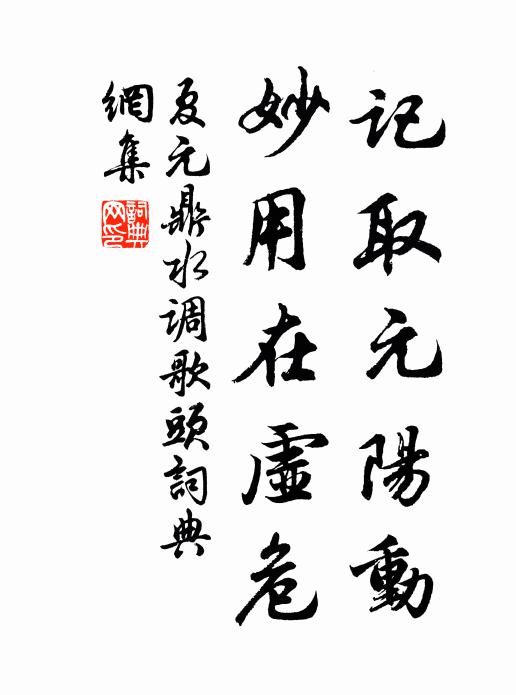 記取元陽動
妙用在虛危
夏元鼎水调歌頭詞典
網集
詞典
网印